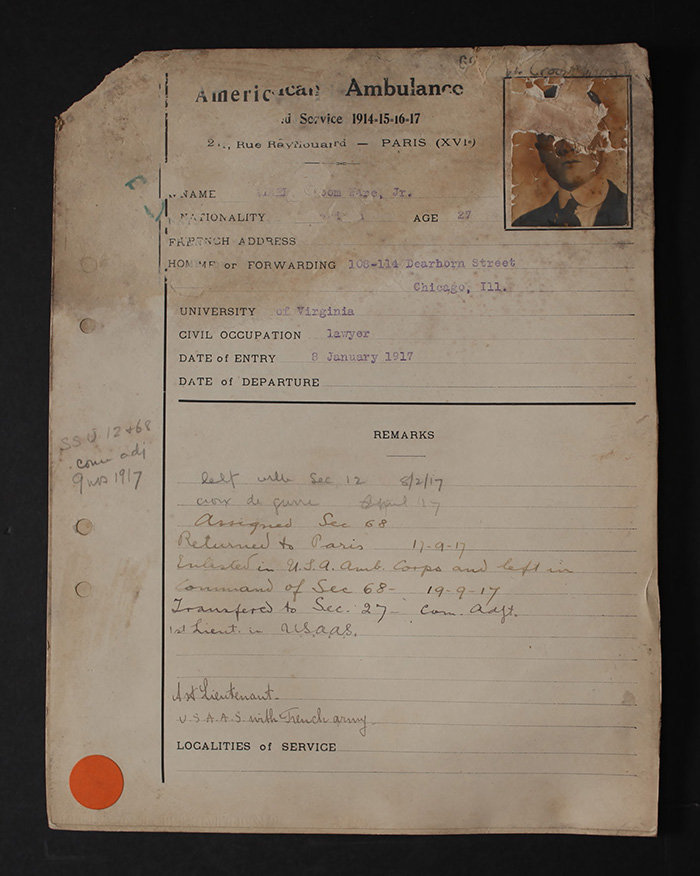 American Ambulance
d Service 1914-15-16-17
Rue Raynouard — PARIS (XVIe)
NAME , Jr.
NATIONALITY AGE 27
FRENCH ADDRESS
HOME or FORWARDING 108-114 Dearborn Street
Chicago, Ill.
UNIVERSITY of Virginia
CIVIL OCCUPATION lawyer
DATE of ENTRY 8 January 1917
DATE of DEPARTURE
REMARKS
SSU 12+68
com adj
9 nov 1917
left with Sec 12 8/2/17
croix de guerre April 17
Assigned Sec 68
Returned to Paris 17-9-17
Enlisted in U.S.A. Amb. Corps and left in
Command of Sec 68- 19-9-17
Transfered to Sec. 27- Com. Adjt.
1st Lieut. in U.S.A.A.S.
1st Lieutenant.
U.S.A.A.S. with French army.
LOCALITIES of SERVICE